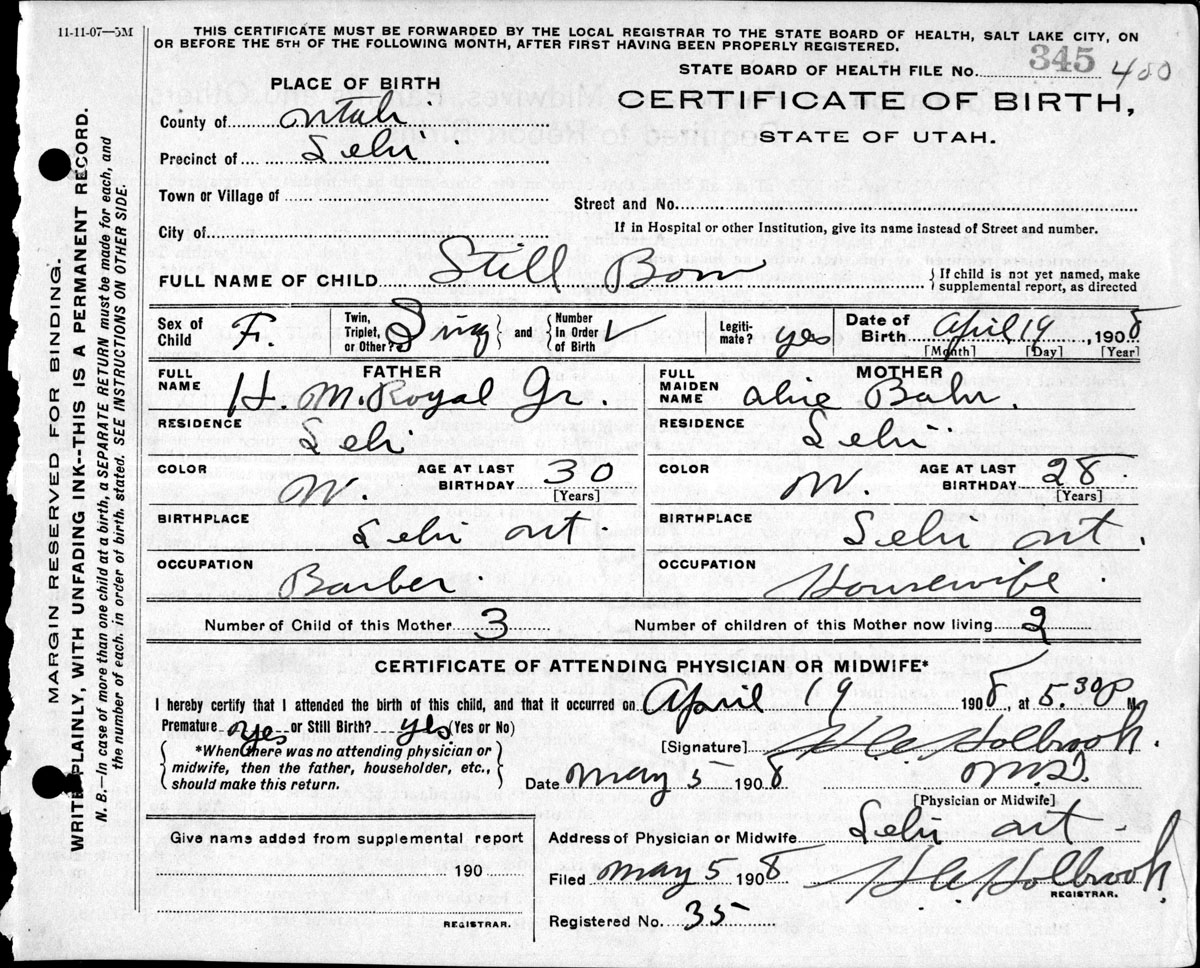 11-11-07—5M
THIS CERTIFICATE MUST BE FORWARDED BY THE LOCAL REGISTRAR TO THE STATE BOARD OF HEALTH, SALT LAKE CITY, ON
OR BEFORE THE 5TH OF THE FOLLOWING MONTH, AFTER FIRST HAVING BEEN PROPERLY REGISTERED.
STATE BOARD OF HEALTH FILE No. 345 480
PLACE OF BIRTH
CERTIFICATE OF BIRTH,
STATE OF UTAH.
County of Utah
Precinct of Lehi
Town or Village of
Street and No.
City of
If in Hospital or other Institution, give its name instead of Street and number.
FULL NAME OF CHILD Still Born
If child is not yet named, make
supplemental report, as directed
Sex of Child F. Twin, Triplet, or Other? Sing and Number In Order of Birth Legiti-mate? yes Date of Birth April 19, 1908
[Month] [Day] [Year]
FATHER
FULL NAME H. M. Royal Jr.
MOTHER
FULL MAIDEN NAME Alice Bahr.
RESIDENCE Lehi
RESIDENCE Lehi
COLOR W. AGE AT LAST BIRTHDAY 30 [Years]
COLOR W. AGE AT LAST BIRTHDAY 28 [Years]
BIRTHPLACE Lehi ut.
BIRTHPLACE Lehi ut.
OCCUPATION Barber.
OCCUPATION Housewife
Number of Child of this Mother 3
Number of children of this Mother now living 2
CERTIFICATE OF ATTENDING PHYSICIAN OR MIDWIFE*
I hereby certify that I attended the birth of this child, and that it occurred on April 19 1908, at 5.30 P M.
Premature yes or Still Birth? yes (Yes or No)
*When there was no attending physician or
midwife, then the father, householder, etc.,
should make this return.
[Signature] H Holbrook.
Date May 5 1908 M.D.
[Physician or Midwife]
Give name added from supplemental report
190
REGISTRAR.
Address of Physician or Midwife Lehi ut
Filed May 5 1908 H Holbrook
REGISTRAR.
Registered No. 35
MARGIN RESERVED FOR BINDING.
WRITE PLAINLY, WITH UNFADING INK--THIS IS A PERMANENT RECORD.
N. B.—In case of more than one child at a birth, a SEPARATE RETURN must be made for each, and
the number of each. in order of birth. stated. SEE INSTRUCTIONS ON OTHER SIDE.